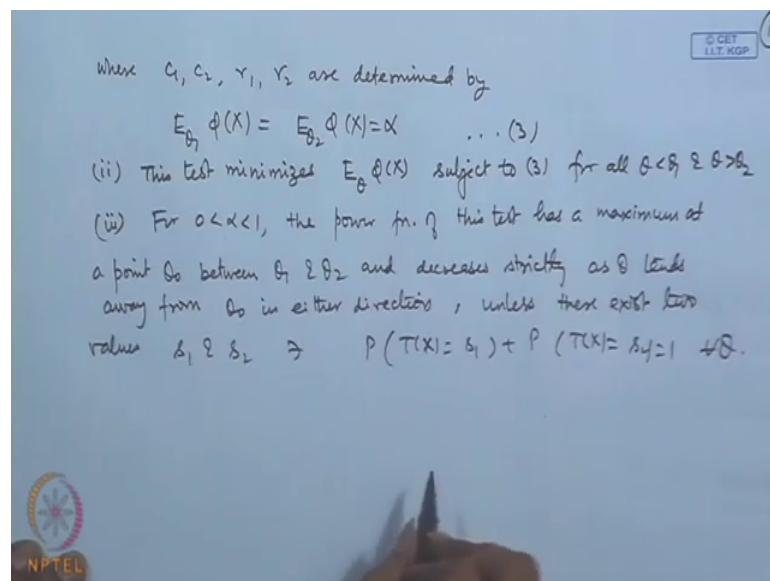 © CET
I.I.T. KGP
where C₁, C₂, γ₁, γ₂ are determined by
E_θ₁ φ(X) = E_θ₂ φ(X) = α ... (3)
(ii) This test minimizes E_θ φ(X) subject to (3) for all θ<θ₁ & θ>θ₂
(iii) For 0<α<1, the power fn. of this test has a maximum at
a point θ₀ between θ₁ & θ₂ and decreases strictly as θ tends
away from θ₀ in either direction, unless there exist two
values s₁ & s₂ ∋ P(T(X)=s₁) + P(T(X)=s₂)=1 ∀θ.
NPTEL